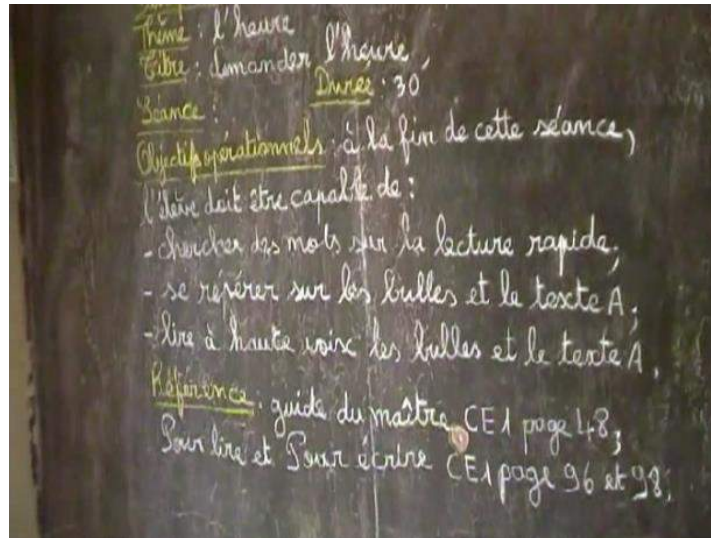 Thème : l'heure
Titre : demander l'heure,
Durée : 30
Séance :
Objectifs opérationnels : à la fin de cette séance,
l'élève doit être capable de :
- chercher des mots sur la lecture rapide ;
- se repérer sur les bulles et le texte A ;
- lire à haute voix les bulles et le texte A.
Référence : guide du maître CE1 page 48 ;
Pour lire et Pour écrire CE1 page 96 et 98.